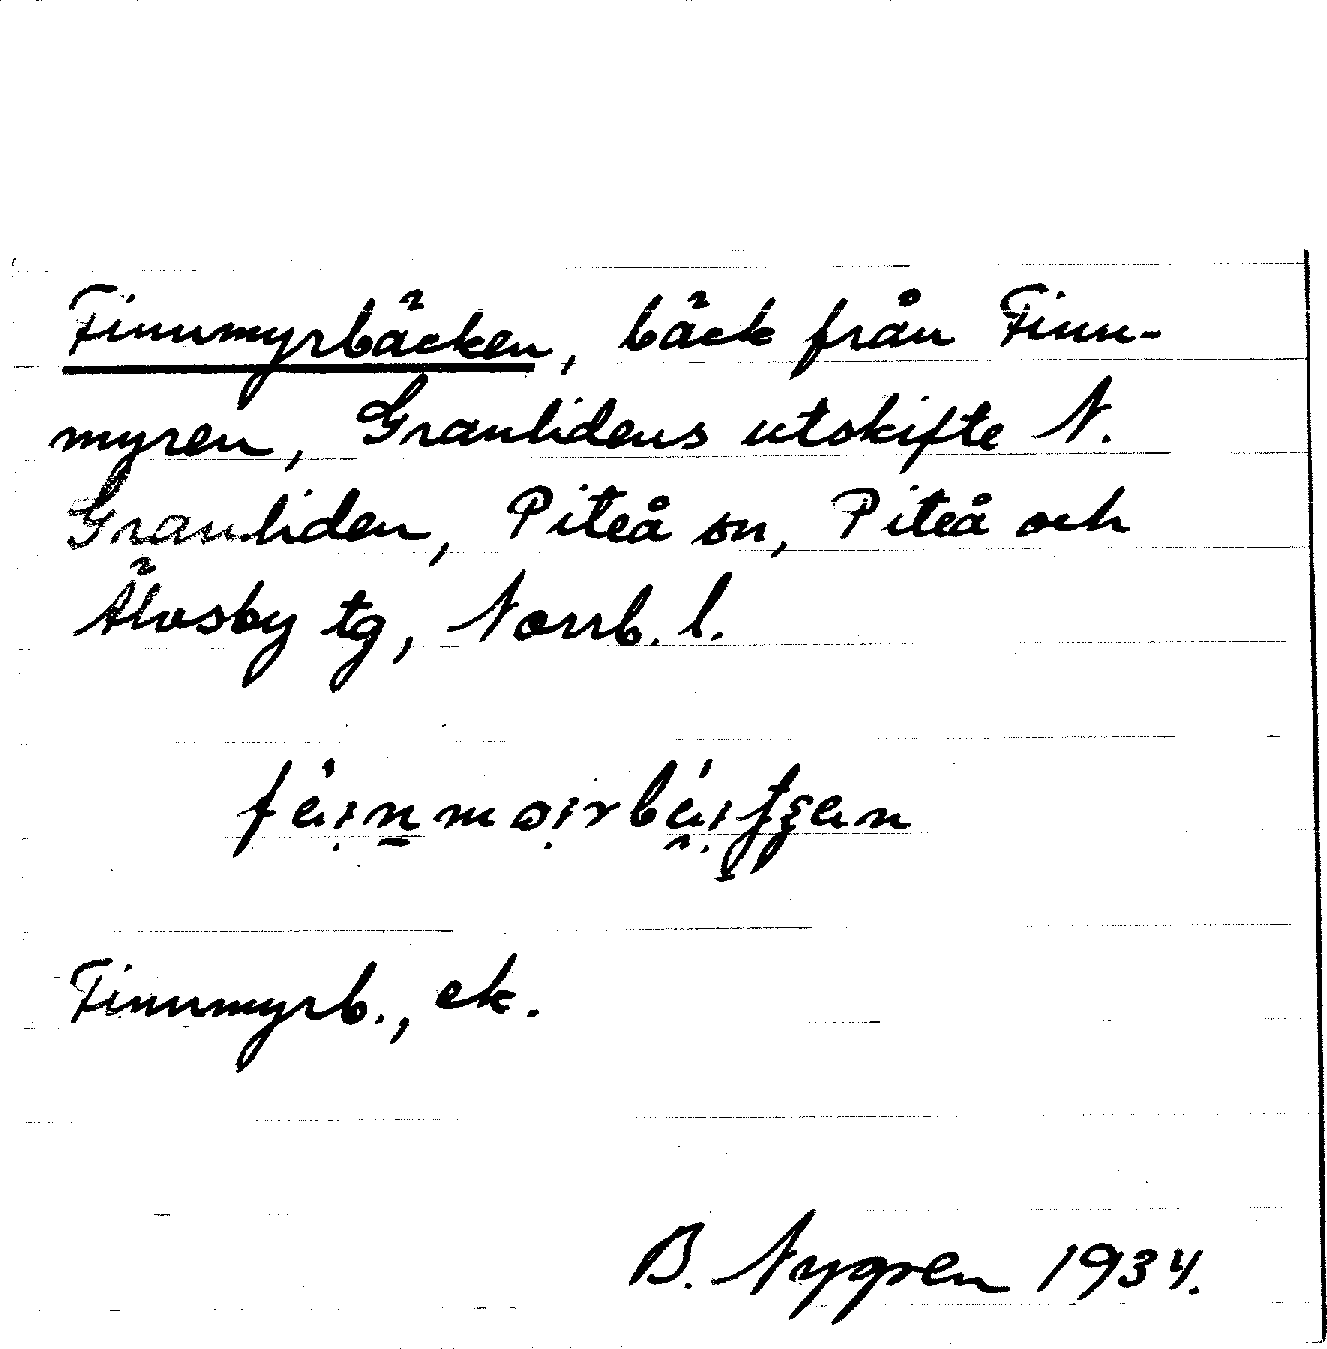 Finnmyrbäcken, bäck från Finn-
myren, Granlidens utskifte N.
Granliden, Piteå sn, Piteå och
Älvsby tg, Norrb. l.
Finnmyrb., ek.
B. Nygren 1934.